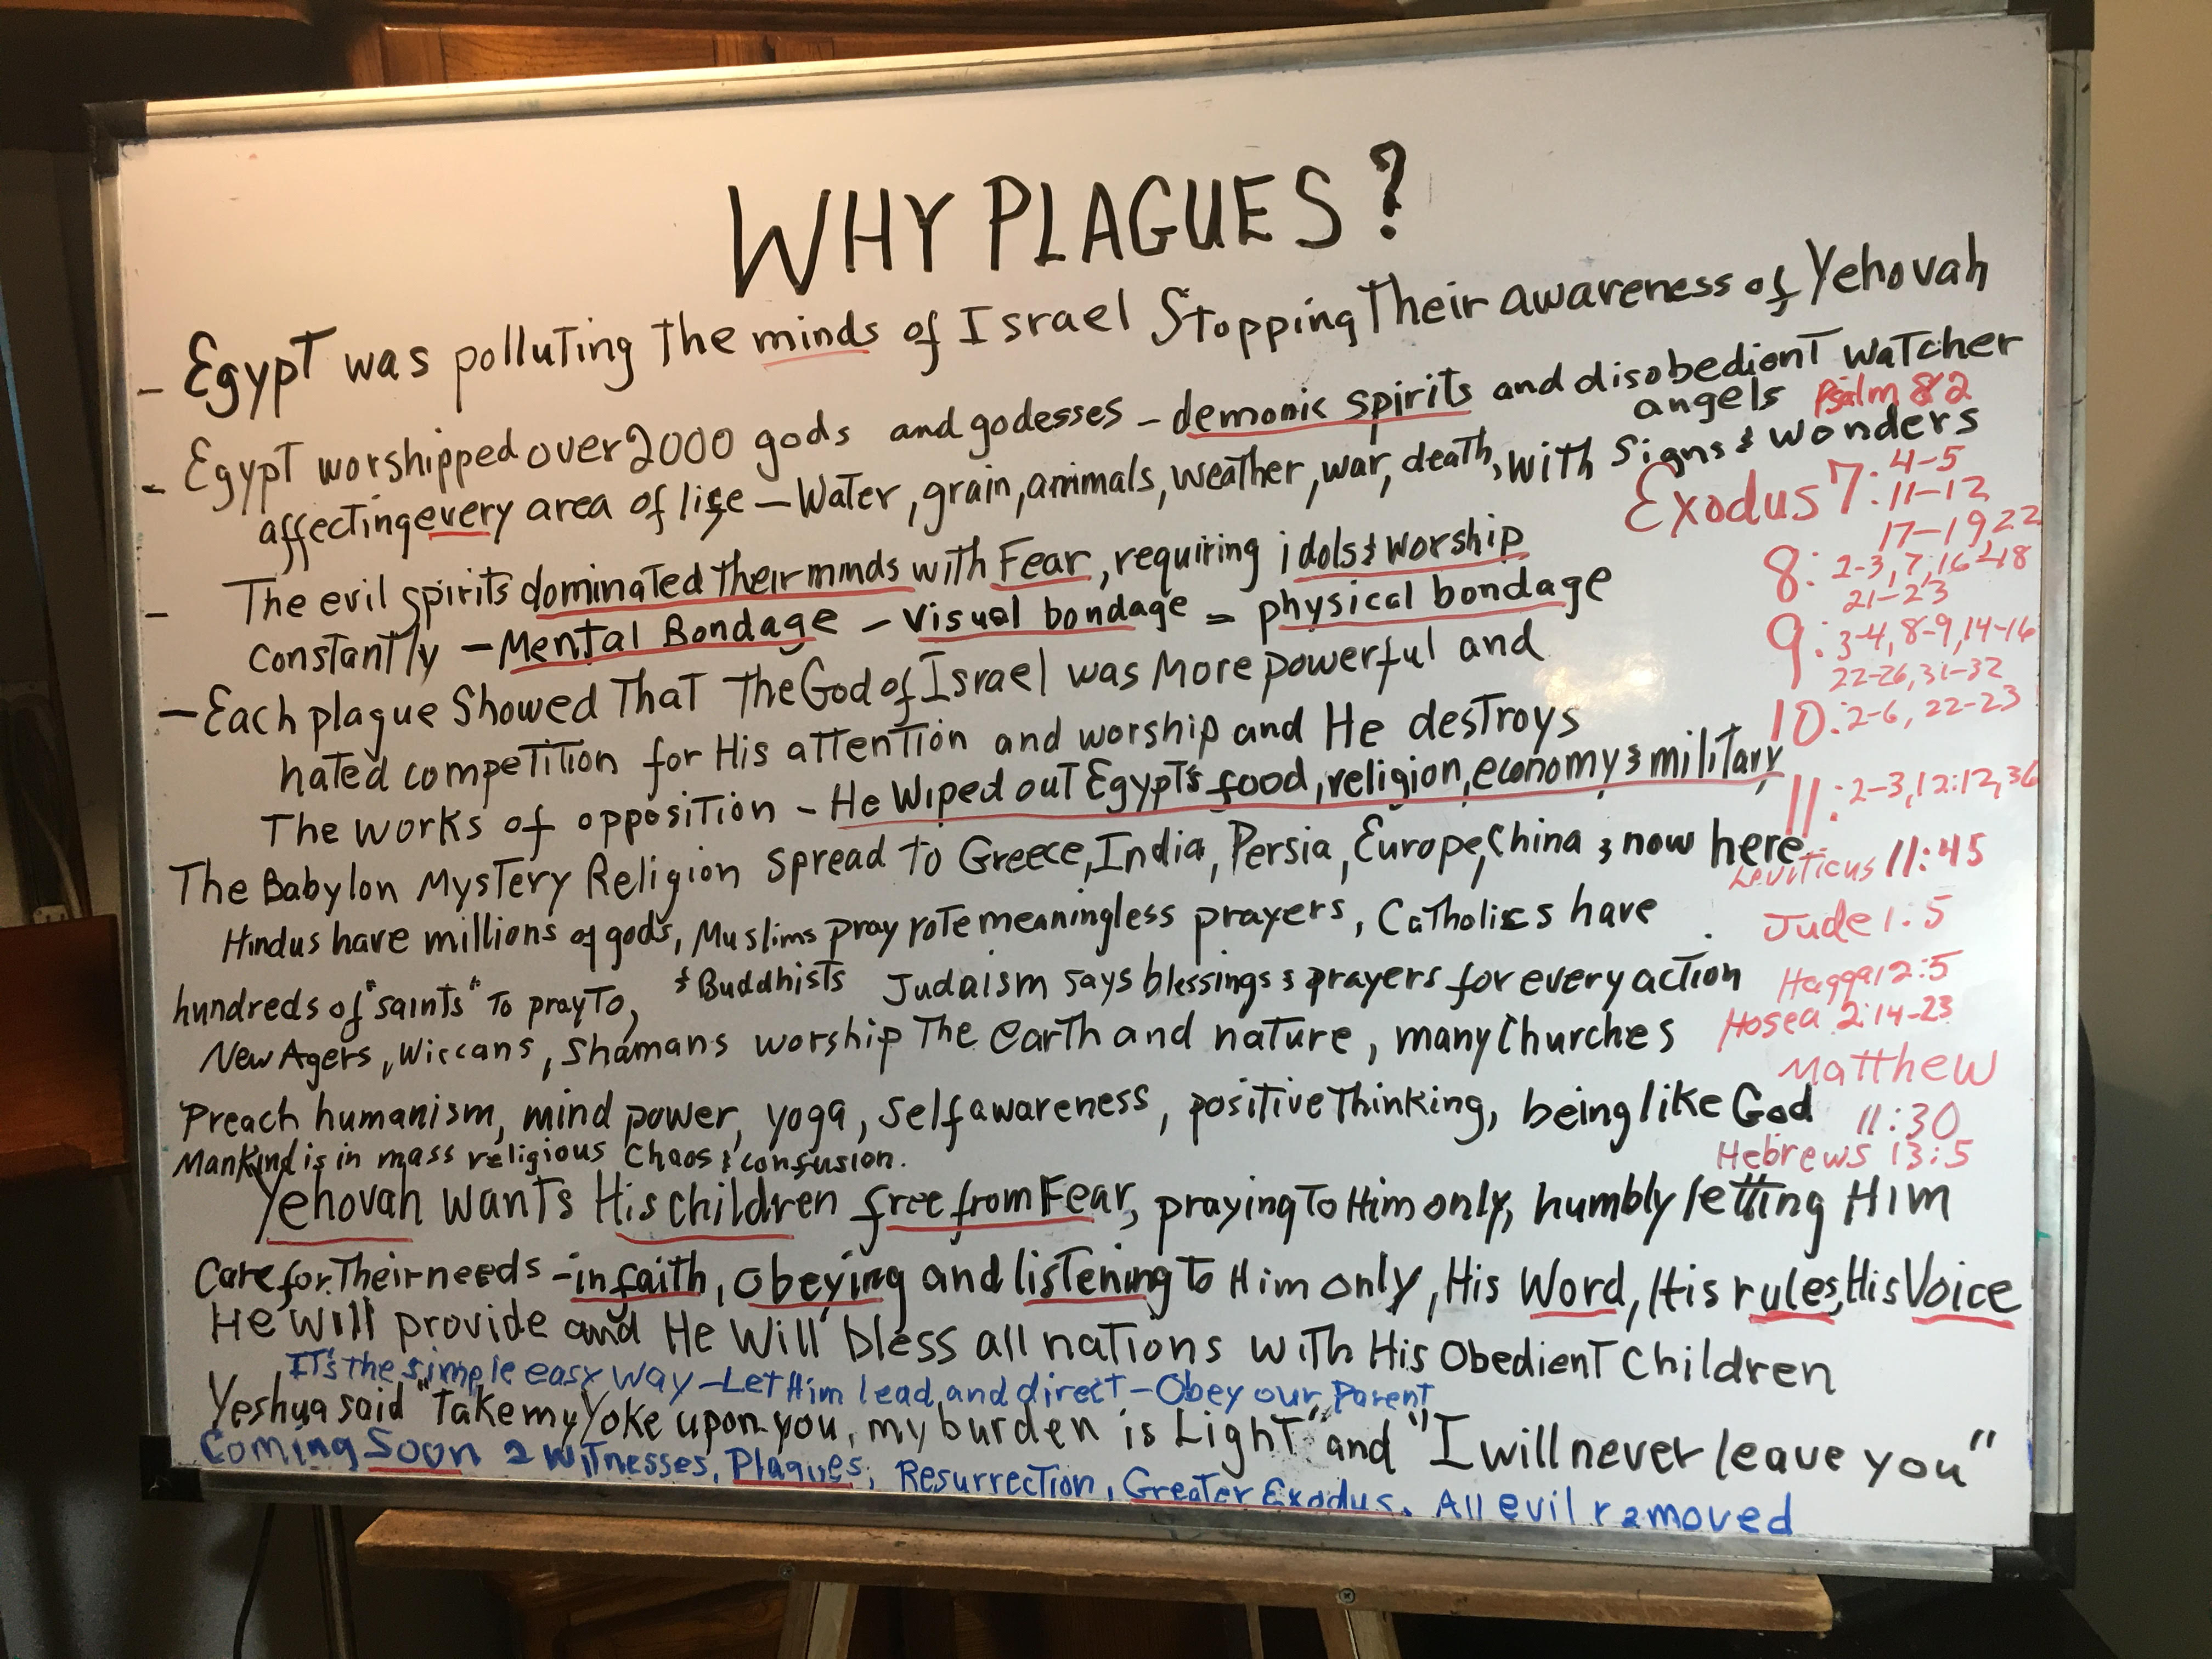 WHY PLAGUES?
- Egypt was polluting the minds of Israel Stopping Their awareness of Yehovah
- Egypt worshipped over 2000 gods and godesses - demonic spirits and disobedient watcher
angels Psalm 82
affecting every area of life - Water, grain, animals, weather, war, death, with Signs & wonders
Exodus 7: 4-5
11-12
17-19 22
- The evil spirits dominated their minds with Fear, requiring idols & worship
8: 2-3, 7, 16-18
21-23
constantly - Mental Bondage - Visual bondage = physical bondage
9: 3-4, 8-9, 14-16
22-26, 31-32
- Each plague Showed That The God of Israel was More powerful and
10: 2-6, 22-23
hated competition for His attention and worship and He destroys
The works of opposition - He Wiped out Egypt's food, religion, economy & military
11: 2-3, 12:12, 36
The Babylon Mystery Religion Spread to Greece, India, Persia, Europe, China & now here
Leviticus 11:45
Hindus have millions of gods, Muslims pray rote meaningless prayers, Catholics have
Jude 1:5
hundreds of "saints" To pray To, & Buddhists Judaism says blessings & prayers for every action
Haggai 2:5
Hosea 2:14-23
New Agers, Wiccans, Shamans worship The earth and nature, many Churches
Matthew
11:30
Preach humanism, mind power, yoga, Self awareness, positive Thinking, being like God
Hebrews 13:5
Mankind is in mass religious Chaos & confusion.
Yehovah wants His children free from Fear, praying To Him only, humbly letting Him
Care for Their needs - in faith, Obeying and listening To Him only, His Word, His rules, His Voice
He will provide and He Will bless all nations with His Obedient Children
IT's the simple easy way - Let Him lead and direct - Obey our Parent
Yeshua said "Take my Yoke upon you, my burden is Light" and "I will never leave you"
Coming Soon 2 Witnesses, Plagues, Resurrection, Greater Exodus. All evil removed